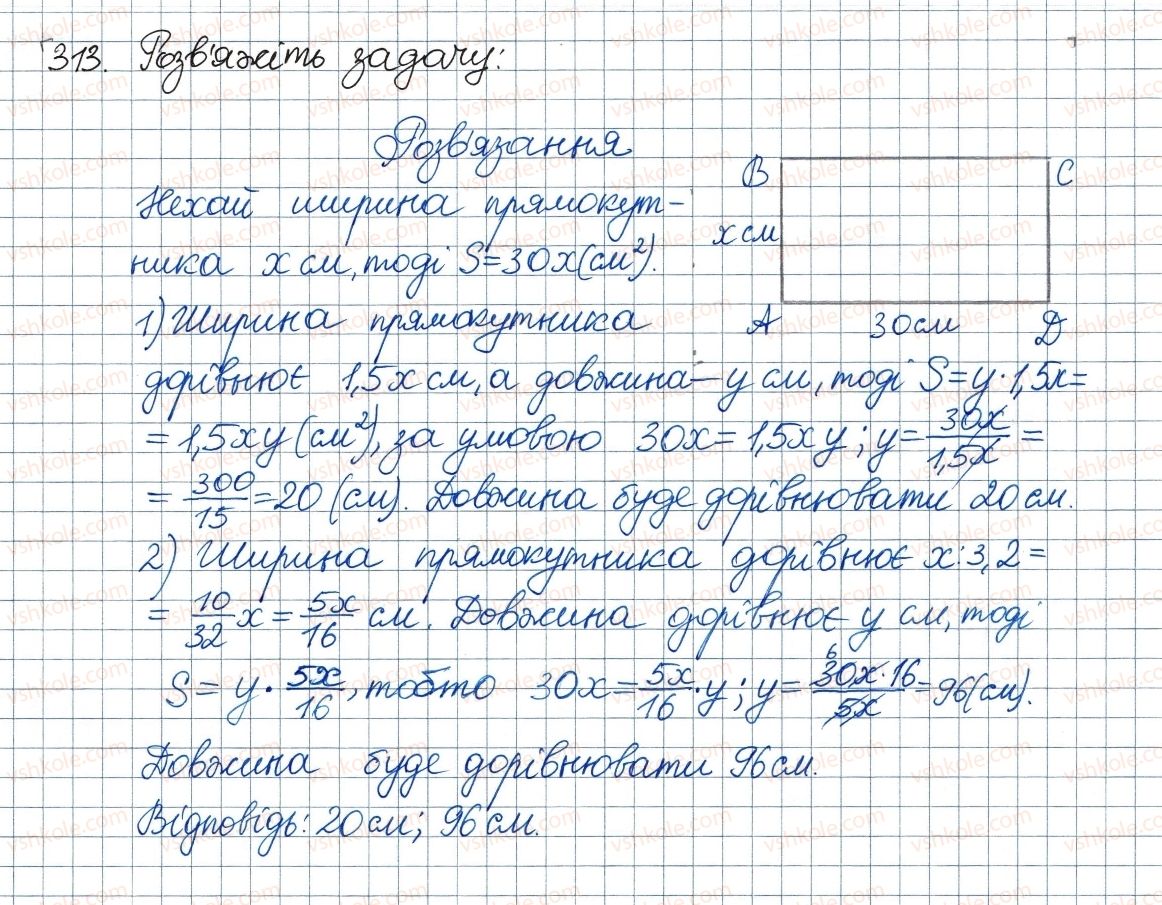 313. Розв'яжіть задачу:
Розв'язання
Нехай ширина прямокут-
ника x см, тоді S=30x(см²).
B C
x см
A 30см D
1) Ширина прямокутника
дорівнює 1,5x см, а довжина – y см, тоді S=y·1,5x=
=1,5xy (см²), за умовою 30x=1,5xy; y=30x/1,5x=
=300/15=20 (см). Довжина буде дорівнювати 20 см.
2) Ширина прямокутника дорівнює x:3,2=
=10/32 x=5x/16 см. Довжина дорівнює y см, тоді
S=y·5x/16, тобто 30x=5x/16·y; y=30x·16/5x=96(см).
6
Довжина буде дорівнювати 96 см.
Відповідь: 20 см; 96 см.
vshkole.com